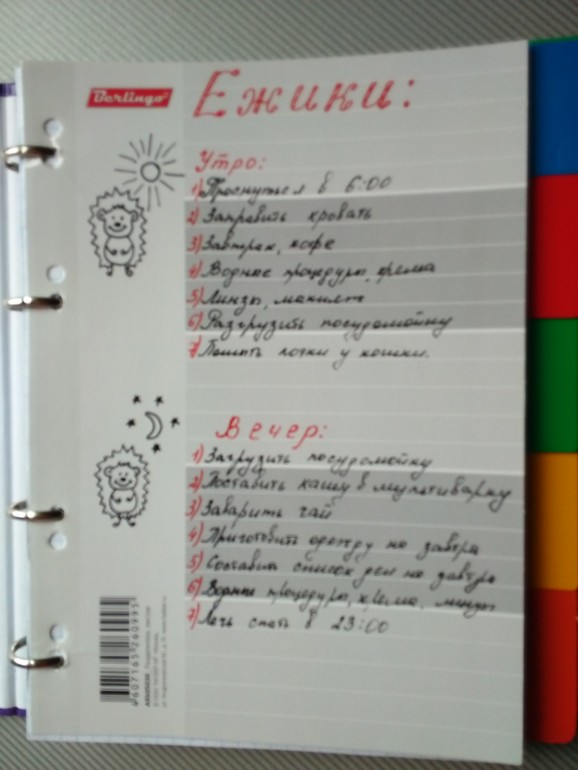 Berlingo
Ежики:
Утро:
1) Проснуться в 6:00
2) Заправить кровать
3) Завтрак, кофе
4) Водные процедуры, крема
5) Линзы, макияж
6) Разгрузить посудомойку
7) Помыть лотки у кошки.
Вечер:
1) Загрузить посудомойку
2) Поставить кашу в мультиварку
3) Заварить чай
4) Приготовить одежду на завтра
5) Составить список дел на завтра
6) Водные процедуры, крема, линзы
7) Лечь спать в 23:00
4607165260995